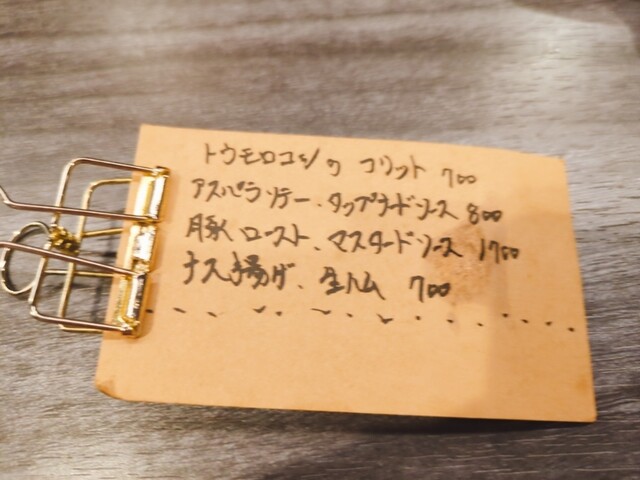 トウモロコシの フリット 700
アスパラソテー、タップナードソース 800
豚ロースト、マスタードソース 1700
ナス揚げ、生ハム 700